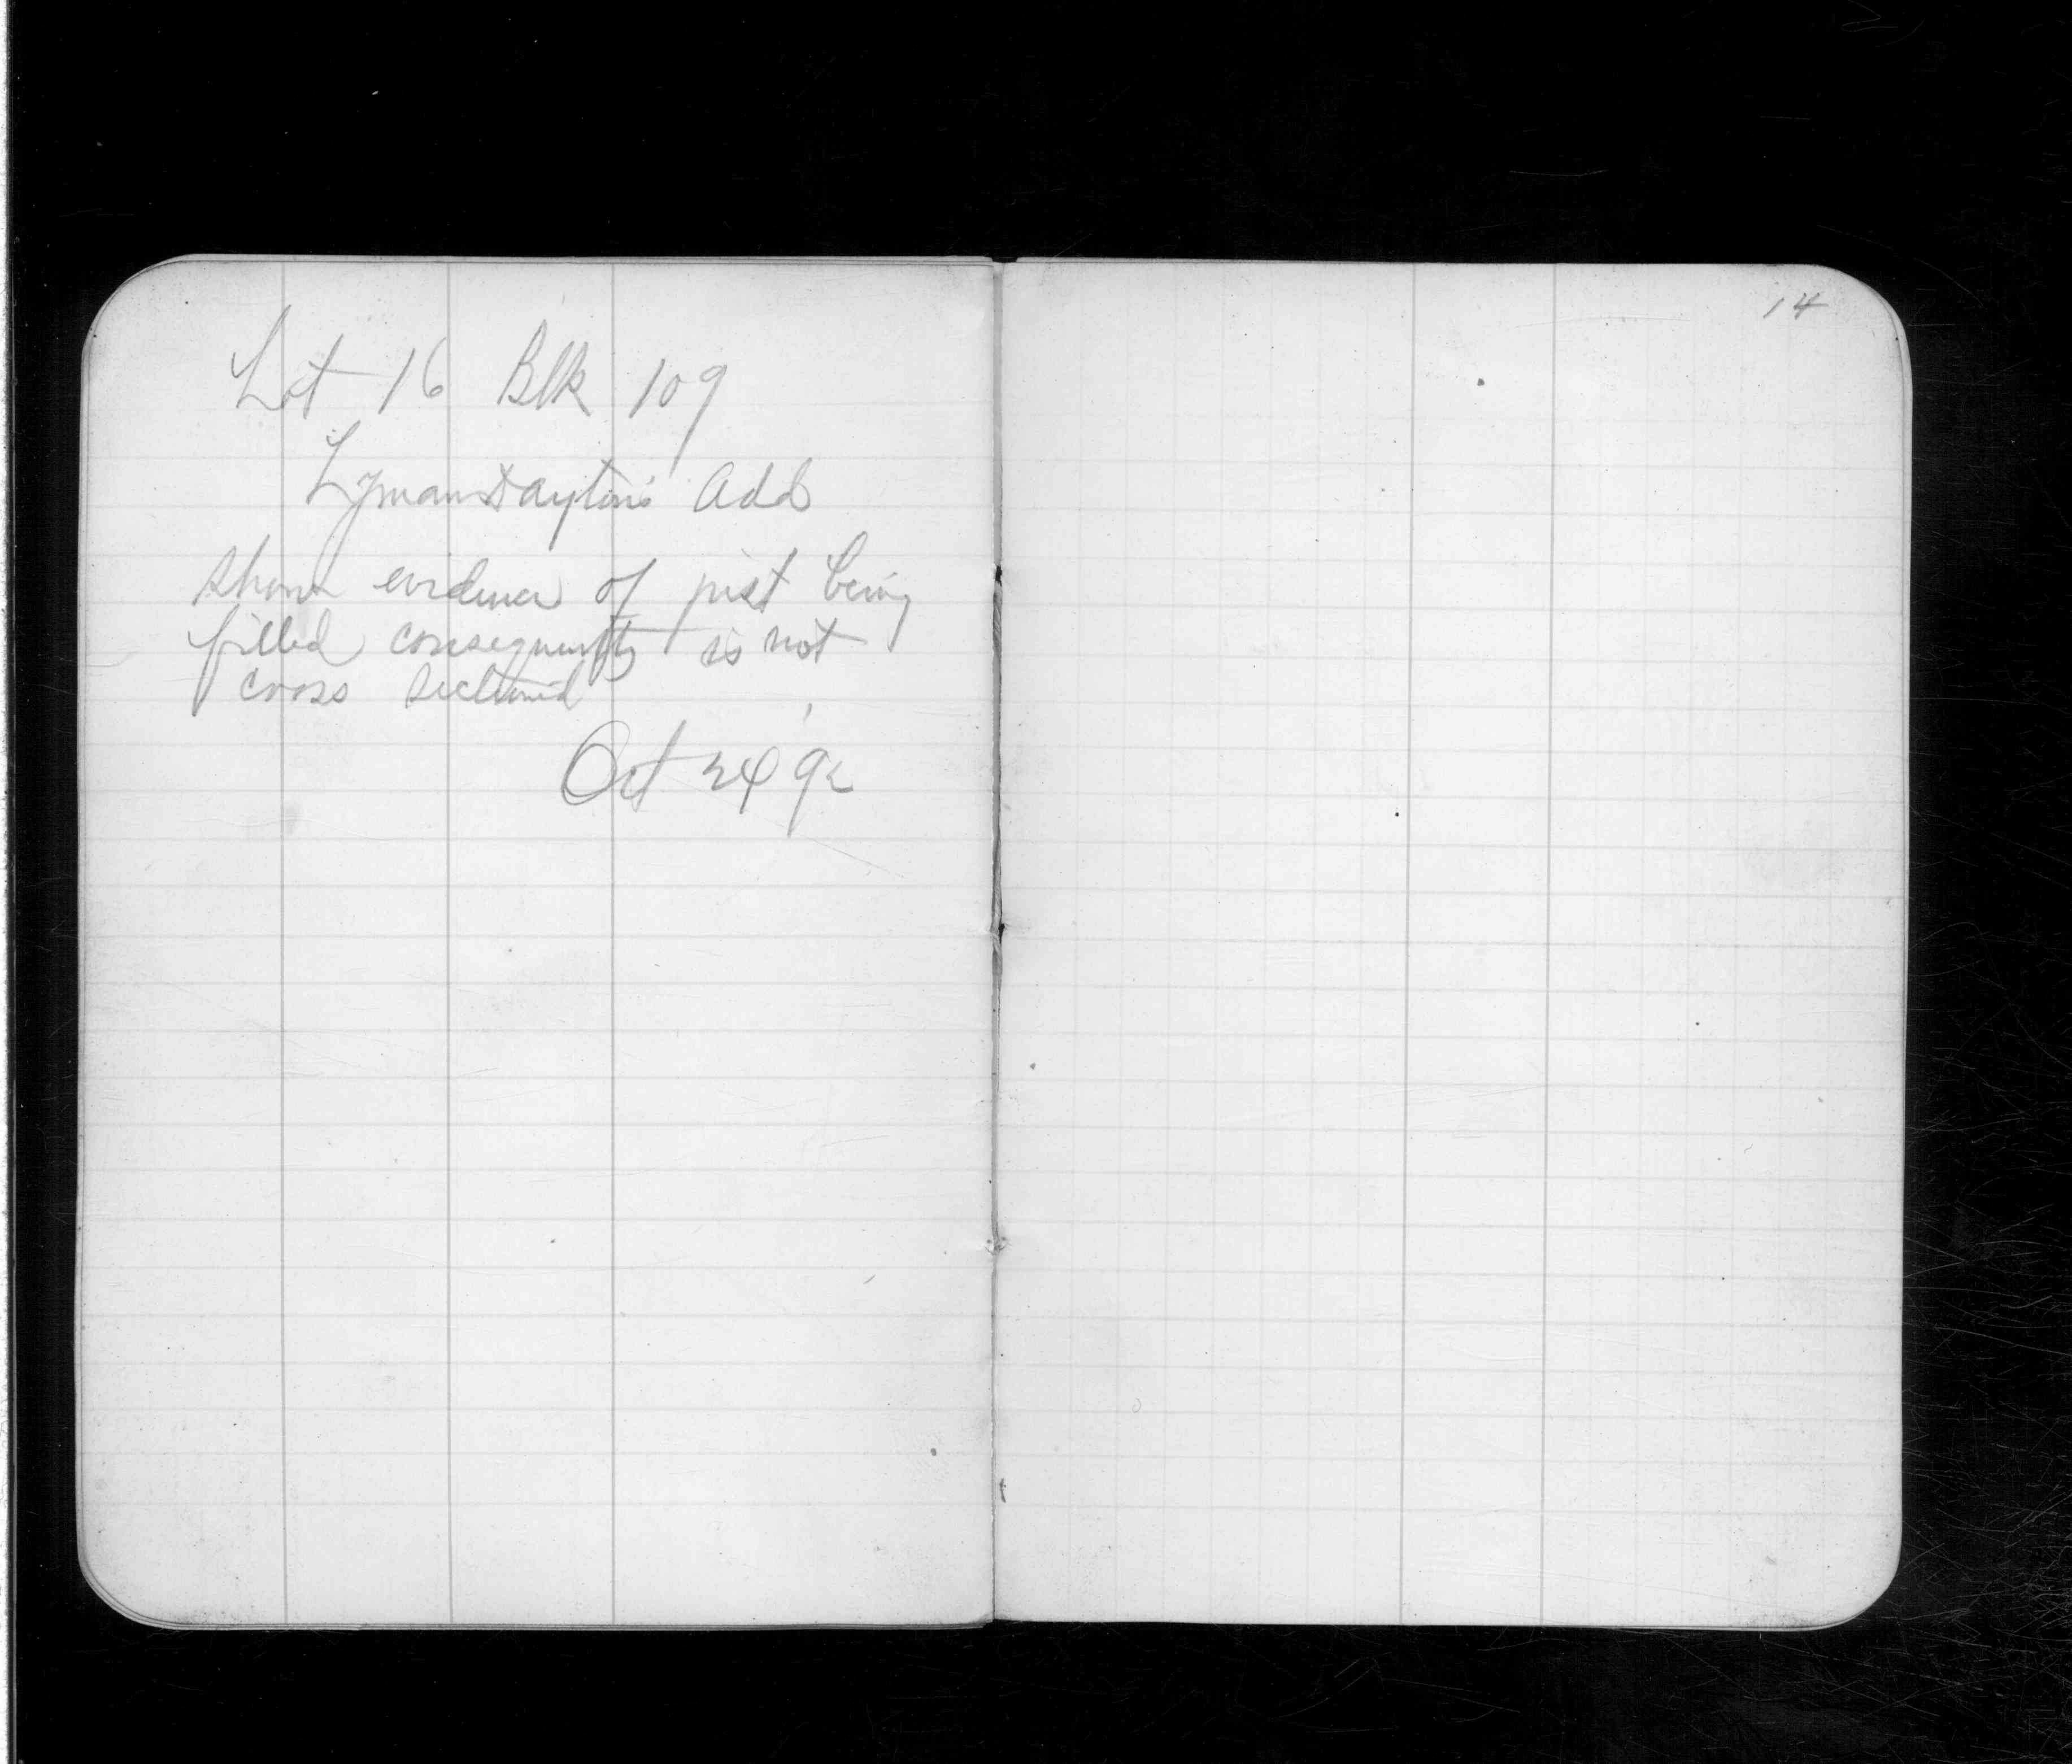 Lot 16 Blk 109
Lyman Dayton's Add
shows evidence of just being
filled consequently is not
cross sectioned
Oct 24 '92
14